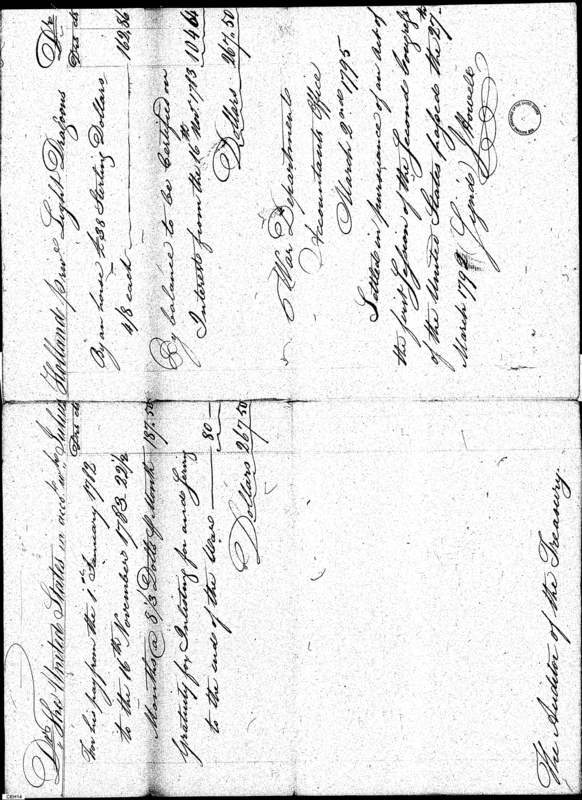 Dr. The United States in acco.t w.th Holland priv.e Light Dragoons Cr
Drs cts
For his pay from the 1st January 1782
to the 16th November 1783 22 1/2
Months @ 8 1/3 Dolls ⅌ Month 187.50
Gratuity for Inlisting for and Serving
to the end of the War 80
Dollars 267.50
The Auditor of the Treasury.
Drs cts
By an horse £38 Sterling Dollars
4/8 each 162,86
By balance to be Certified on
Interest from the 16th Nov.r 1783 104.64
Dollars 267.50
War Department
Accountants Office
March 2nd 1795
Settled in pursuance of an act of
the first Session of the Second Congress
of the United States passed the 27th
March 1792 Sign'd J Howell
CEH14